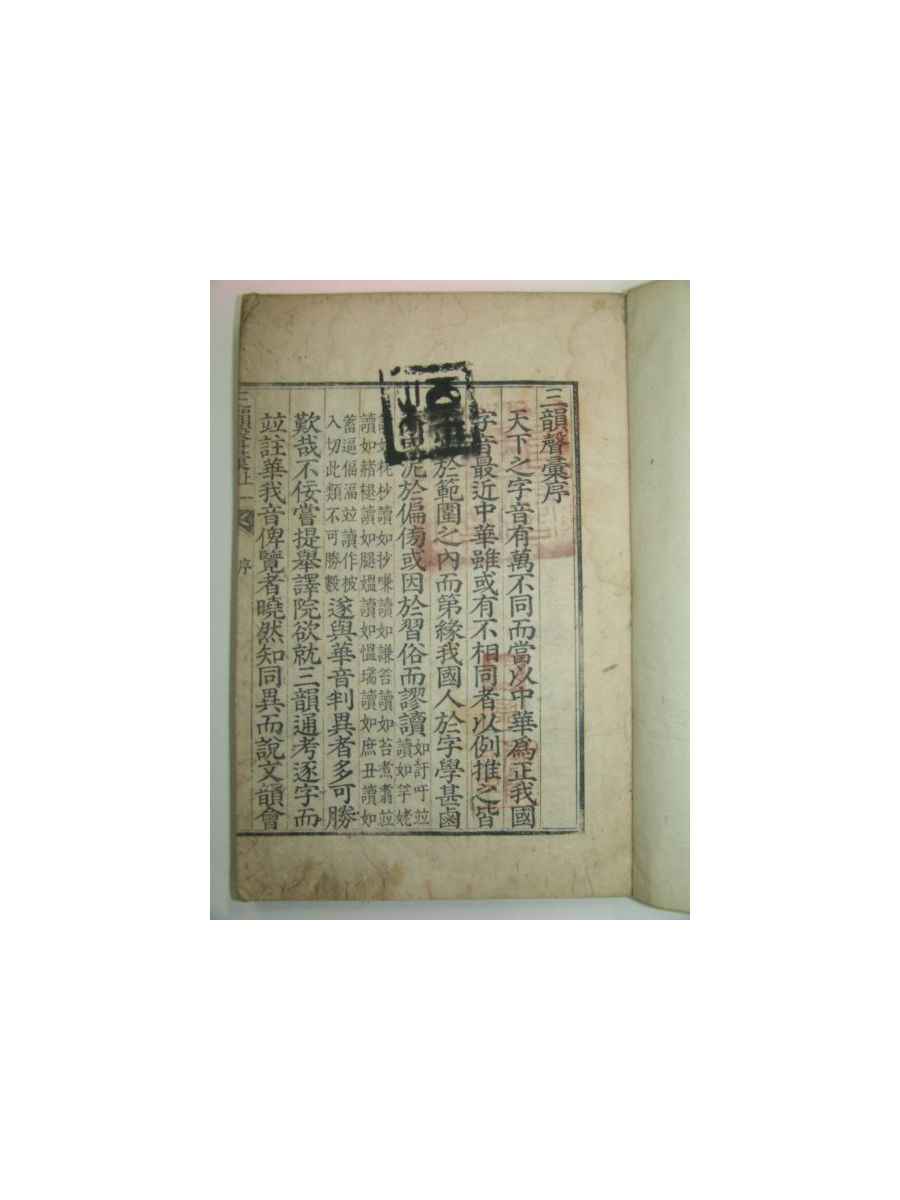 三韻聲彙序
天下之字音有萬不同而當以中華爲正我國
字音最近中華雖或有不相同者以例推之皆
於範圍之內而第緣我國人於字學甚鹵
泥於偏傍或因於習俗而謬讀如訏吁竝
讀如竽姥
杪讀如抄嗛讀如謙笞讀如苔煮翥竝
讀如赭褪讀如腿媼讀如慍瑞讀如庶丑讀如
蓄逼偪湢竝讀作
入切此類不可勝數遂與華音判異者多可勝
歎哉不佞嘗提舉譯院欲就三韻通考逐字而
竝註華我音俾覽者曉然知同異而說文韻會
三韻聲彙上 一 序